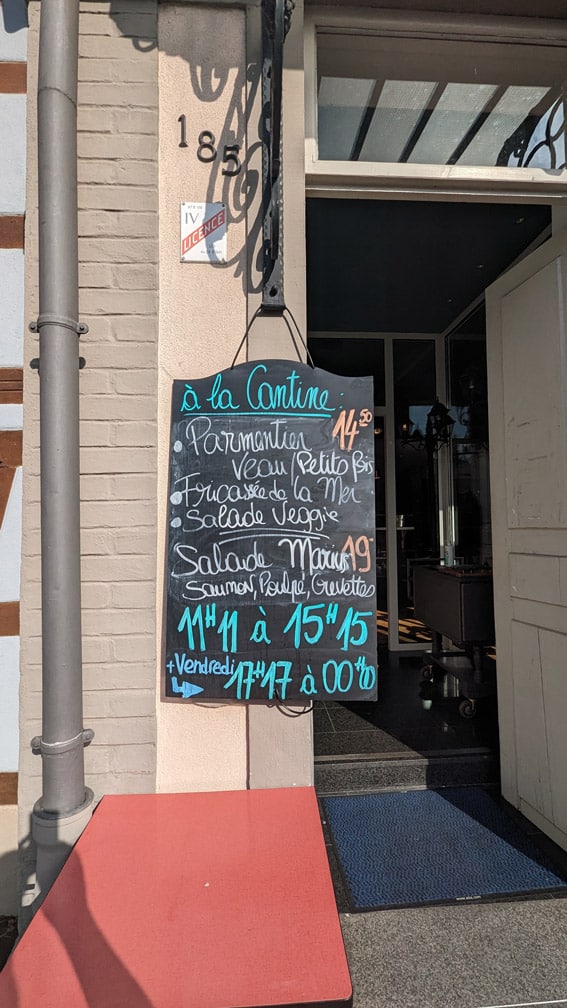 185
IV
LICENCE
à la Cantine :
Parmentier 14 50
Veau/Petits Pois
Fricassée de la Mer
Salade Veggie
Salade Marius 19
Saumon, Poulpe, Crevettes
11H11 à 15H15
+Vendredi 17H17 à 00H00